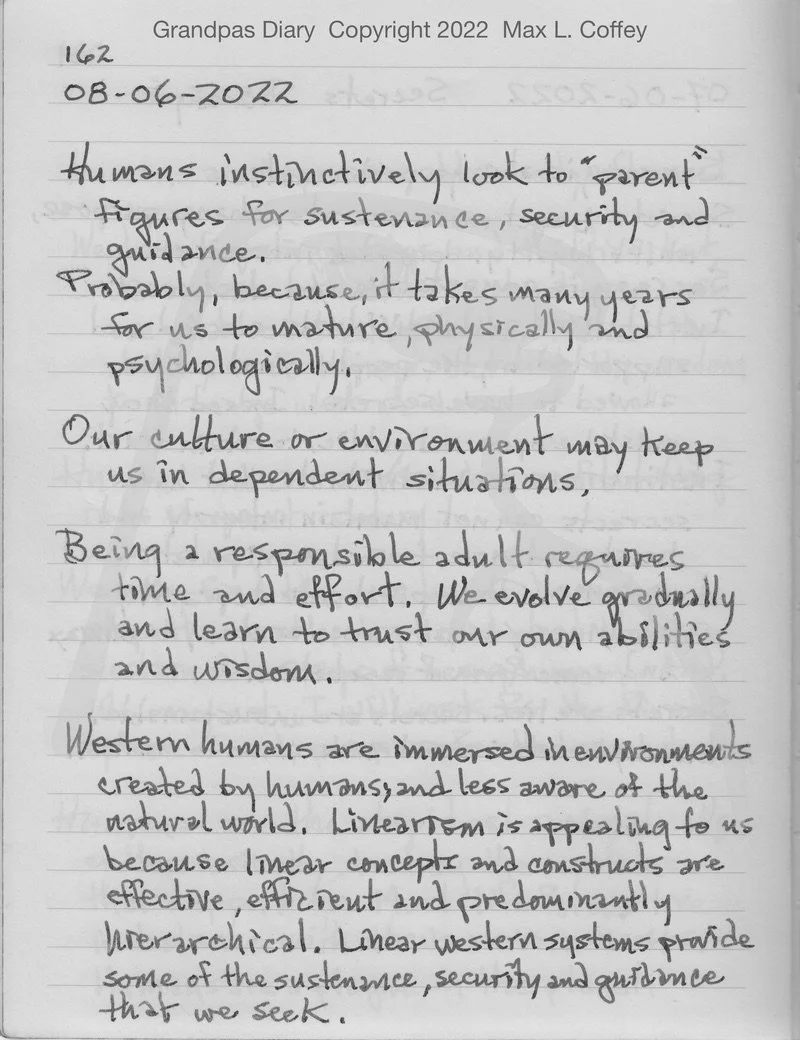 Grandpas Diary Copyright 2022 Max L. Coffey
162
08-06-2022
Humans instinctively look to "parent"
figures for sustenance, security and
guidance.
Probably, because, it takes many years
for us to mature, physically and
psychologically.
Our culture or environment may keep
us in dependent situations.
Being a responsible adult requires
time and effort. We evolve gradually
and learn to trust our own abilities
and wisdom.
Western humans are immersed in environments
created by humans; and less aware of the
natural world. Linearism is appealing to us
because linear concepts and constructs are
effective, efficient and predominantly
hierarchical. Linear western systems provide
some of the sustenance, security and guidance
that we seek.